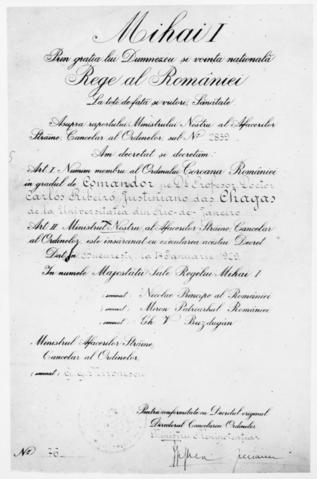 Mihai I
Prin gratia lui Dumnezeu si vointa natională
Rege al României
La toti de fată si viitori, Sănătate
Asupra raportului Ministrului Nostru al Afacerilor
Străine, Cancelar al Ordinelor, sub No 2859
Am decretat si decretăm:
Art I Numim membru al Ordinului Coroana României
in gradul de Comandor pe Dl Profesor Doctor
Carlos Ribeiro Justiniano das Chagas
de la Universitatia din Rio de Janeiro
Art II Ministrul Nostru al Afacerilor Străine, Cancelar
al Ordinelor, este insărcinat cu executarea acestui Decret
Dat in Bucuresti la 14 Ianuarie 1929
In numele Majestatii Sale Regelui Mihai I
semnat: Nicolae Principe al României
semnat: Miron Patriarhul României
semnat: Gh V Buzdugan
Ministrul Afacerilor Străine
Cancelar al Ordinelor
semnat: G. G. Mironescu
Pentru conformitate cu Decretul original
Directorul Cancelariei Ordinelor
Ministru Plenipotentiar
No 76